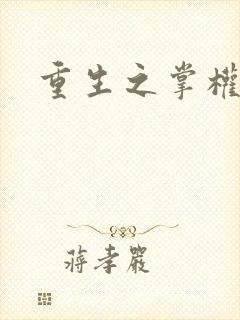 重生之掌權
蔣孝嚴